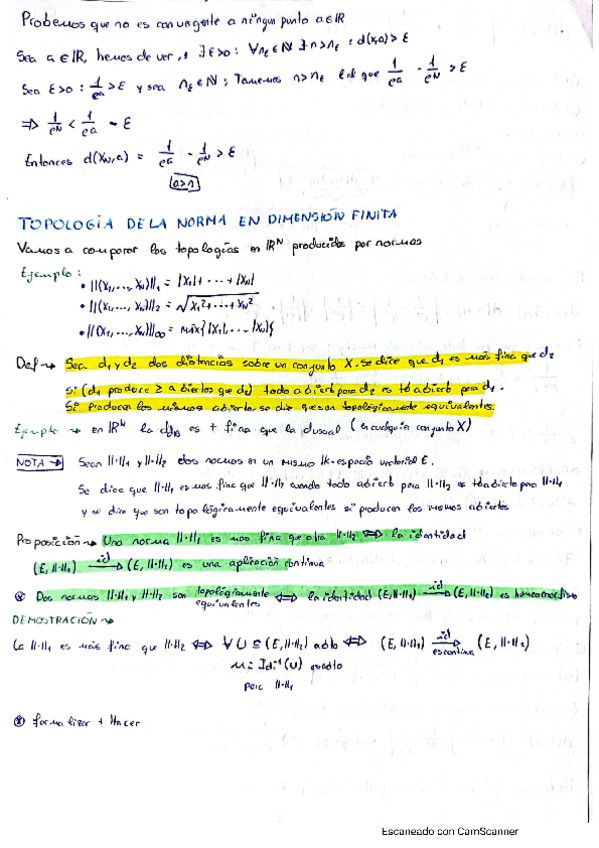 Probemos que no es convergente a ningún punto a∈ℝ
Sea a∈ℝ, hemos de ver, ∃ε>0: ∀nε∈ℕ ∃n>nε : d(x,a)>ε
Sea ε>0 : 1/e^a > ε y sea nε∈ℕ; Tomemos n>nε tal que 1/e^a - 1/e^N > ε
⇒ 1/e^N < 1/e^a - ε
Entonces d(xN,a) = 1/e^a - 1/e^N > ε
TOPOLOGÍA DE LA NORMA EN DIMENSIÓN FINITA
Vamos a comparar las topologías en ℝᴺ producidas por normas
Ejemplo:
• ||(x₁,..., xN)||₁ = |x₁| + ··· + |xN|
• ||(x₁,..., xN)||₂ = √x₁²+···+xN²
• ||(x₁,..., xN)||∞ = máx{|x₁|,...,|xN|}
Def → Sea d₁ y d₂ dos distancias sobre un conjunto X. se dice que d₁ es más fina que d₂
si (d₁ produce ≥ abiertos que d₂) todo abierto para d₂ es tb abierto para d₁.
Si producen los mismos abiertos, se dice que son topológicamente equivalentes.
Ejemplo → en ℝᴺ la es + fina que la dusual (en cualquier conjunto X)
NOTA → Sean ||·||₁ y ||·||₂ dos normas en un mismo K-espacio vectorial E.
Se dice que ||·||₁ es más fina que ||·||₂ cuando todo abierto para ||·||₂ es tb abierto para ||·||₁
y se dice que son topológicamente equivalentes si producen los mismos abiertos
Proposición → Una norma ||·||₁ es más fina que otra ||·||₂ ⇔ la identidad
(E, ||·||₁) —id→ (E, ||·||₂) es una aplicación continua
⊛ Dos normas ||·||₁ y ||·||₂ son topológicamente equivalentes ⇔ la identidad (E, ||·||₁) —id→ (E, ||·||₂) es homeomorfismo
DEMOSTRACIÓN
La ||·||₁ es más fina que ||·||₂ ⇔ ∀U⊆(E, ||·||₂) abto ⇔ (E, ||·||₁) —id→ (E, ||·||₂)
es continua
= Id⁻¹(U)
para ||·||₁
⊛ formalizar + Hacer
Escaneado con CamScanner